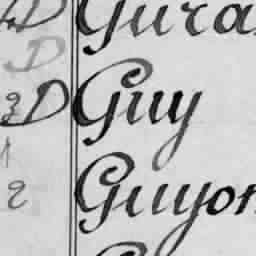 D Gura
D
3 D Guy
1
2 Guyon